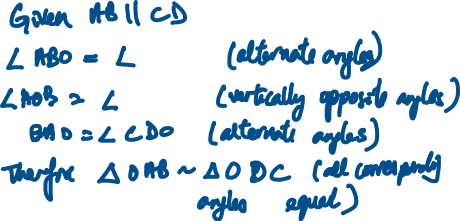 Given AB || CD
∠ ABO = ∠ (alternate angles)
∠AOB = ∠ (vertically opposite angles)
BAO = ∠ CDO (alternate angles)
Therefore △ OAB ~ △ ODC (all corresponding
angles equal)